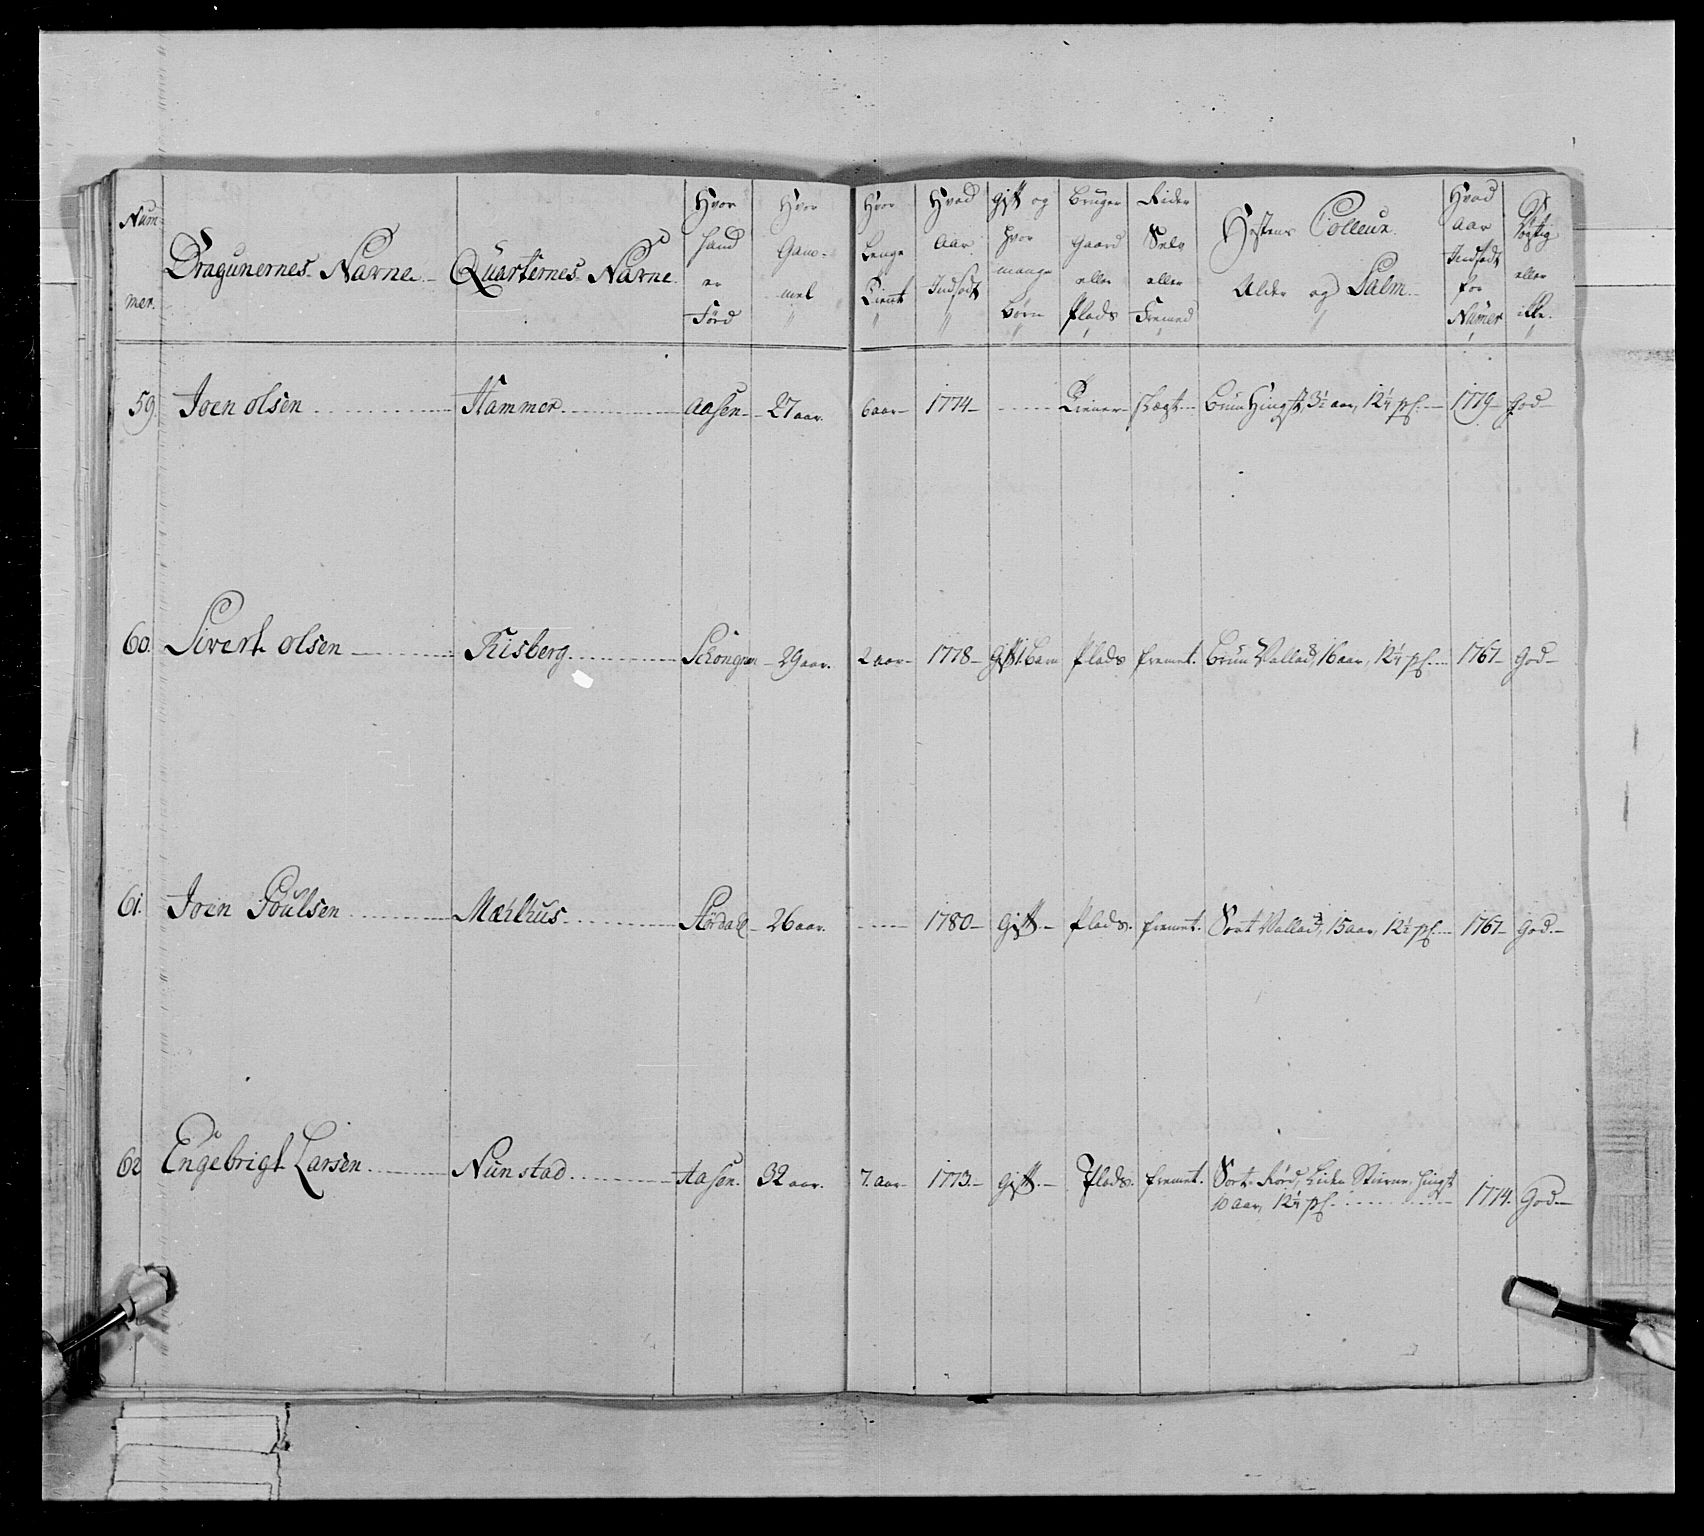 Num- mer. Dragunernes Navne Quarternes Navne Hvor hand er Förd Hvor Gam- mel Hvor Lenge Tient Hvad Aar Indsadt Gift og hvor mange börn Bruger Gaard eller Plads Rider Selv eller Fremed Hestens Colleur Alder og Palm Hvad Aar Indsadt for Numer Dögtig eller ikke.
59. Joen olsen Hammer Aasen 27 aar. 6 aar 1774 Tiener Brun Hingst, 3½ aar, 12¼ pl. 1779 god
60. Sivert olsen Risberg Schongnen 29 aar. 2 aar 1778 gift 1 Barn Plads fremt. Brun Vallad, 16 aar, 12¼ pl. 1767 god
61. Joen Poulsen Mæhlhus Stördahl 26 aar. 1780 gift Plads. fremt. Sort Vallad, 15 aar, 12¼ pl. 1767 god.
62 Engebrigt Larsen Nunstad Aasen. 32 aar. 7. aar 1773. gift. Plads. fremt. Sort Liden Stierne, hingst
10 aar, 12¼ pl. 1774. God